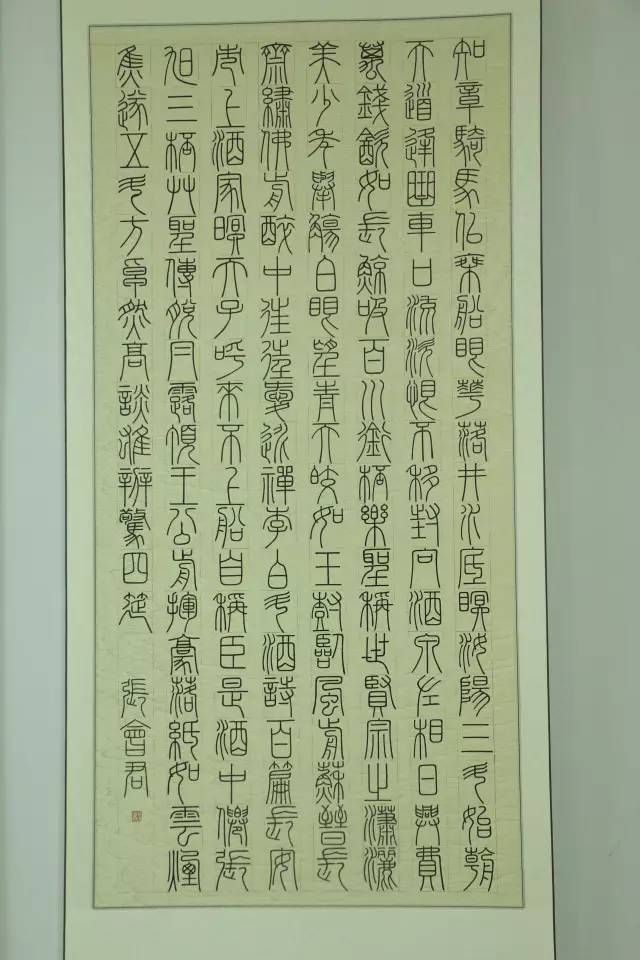 知章騎馬佀乘船眼華落井水底眠汝陽三斗始朝
天道逢麴車口流涎恨不移封向酒泉左相日興費
萬錢飲如長鯨吸百川銜杯樂聖稱世賢宗之瀟灑
美少年舉觴白眼望青天皎如玉樹臨風前蘇晉長
齋繡佛前醉中往往愛逃禪李白斗酒詩百篇長安
市上酒家眠天子呼來不上船自稱臣是酒中僊張
旭三杯艸聖傳脫帽露頂王公前揮豪落紙如雲煙
焦遂五斗方卓然高談雄辯驚四筵 張會君